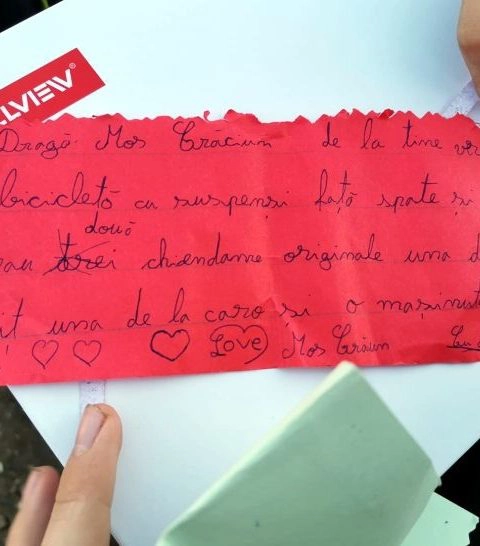 LLVIEW®
Dragă Mos Crăciun de la tine vr
bicicletă cu suspensi fată spate si
două
rau trei chiendame originale una d
it una de la caro si o masinut
Love Mos Crăiun